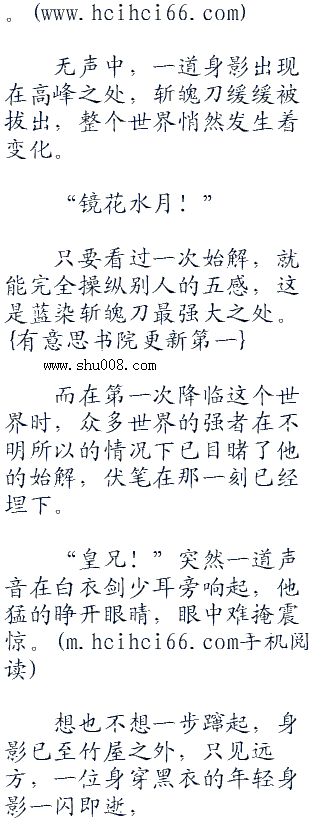 。(www.hcihci66.com)
无声中，一道身影出现
在高峰之处，斩魄刀缓缓被
拔出，整个世界悄然发生着
变化。
“镜花水月！”
只要看过一次始解，就
能完全操纵别人的五感，这
是蓝染斩魄刀最强大之处。
{有意思书院更新第一}
www.shu008.com
而在第一次降临这个世
界时，众多世界的强者在不
明所以的情况下已目睹了他
的始解，伏笔在那一刻已经
埋下。
“皇兄！”突然一道声
音在白衣剑少耳旁响起，他
猛的睁开眼睛，眼中难掩震
惊。(m.hcihci66.com手机阅
读)
想也不想一步蹿起，身
影已至竹屋之外，只见远
方，一位身穿黑衣的年轻身
影一闪即逝，